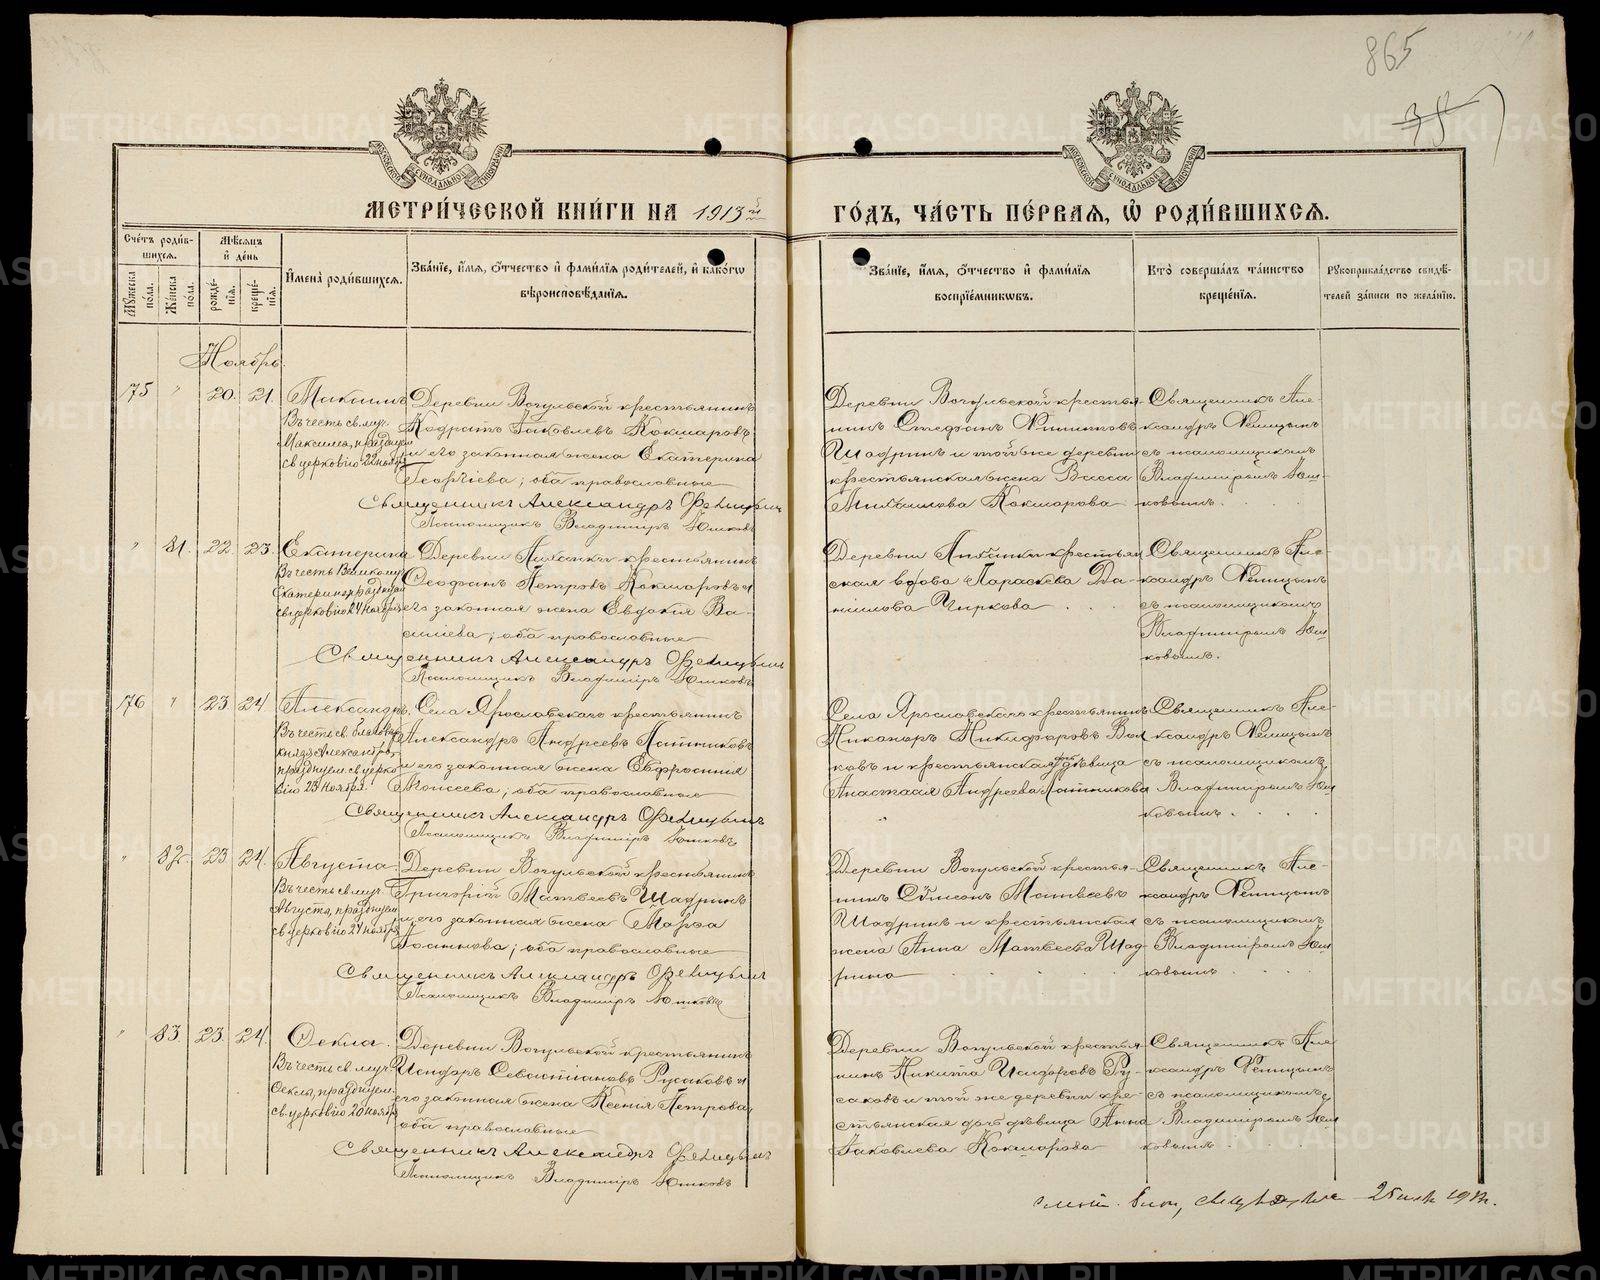 865
МЕТРИ́ЧЕСКОЙ КНИ́ГИ НА 1913й ГО́ДЪ, ЧА́СТЬ ПЕ́РВАЯ, Ѡ РОДИ́ВШИХСЯ.
Сче́тъ роди́вшихся.
Мѣ́сяцъ и де́нь
Мꙋ́жеска по́ла.
Же́нска по́ла.
рожде́нїя.
креще́нїя.
Имена̀ роди́вшихся.
Зва́нїе, и́мя, ѻ́тчество и фами́лїя роди́телей, и како́гѡ вѣроисповѣ́данїя.
Зва́нїе, и́мя, ѻ́тчество и фами́лїя воспрїе́мникѡвъ.
Кто̀ соверша́лъ та́инство креще́нїя.
Рꙋкоприкла́дство свидѣ́телей за́писи по жела́нїю.
Ноябрь.
175 " 20. 21.
Максимъ
Въ честь св. муч.
Максима, празднуем.
св. церковію 22 ноября
Деревни Вогульской крестьянинъ
Кодратъ Іаковлевъ Кокшаровъ
и его законная жена Екатерина
Георгіева; оба православные
Священникъ Александръ Ѳелицынъ
Псаломщикъ Владиміръ Юшковъ
Деревни Вогульской крестья-
нинъ Стефанъ Никитовъ
Шадринъ и той же деревни
крестьянская жена Васса
Михайлова Кокшарова
Священникъ Але-
ксандръ Ѳелицынъ
съ псаломщикомъ
Владиміромъ Юш-
ковымъ.
" 81. 22. 23.
Екатерина
Въ честь Великомуч.
Екатерины, празднуем.
св. церковію 24 ноября
Деревни крестьянинъ
Ѳеофанъ Петровъ Кокшаровъ и
его законная жена Евдокія Ва-
силіева; оба православные
Священникъ Александръ Ѳелицынъ
Псаломщикъ Владиміръ Юшковъ
Деревни крестьян
ская вдова Параскева Да-
ниилова Чиркова
Священникъ Але-
ксандръ Ѳелицынъ
съ псаломщикомъ
Владиміромъ Юш
ковымъ.
176 " 23 24
Александръ.
Въ честь св. благовѣр.
князя Александра,
празднуем. св. церко-
вію 23 ноября.
Села Ярославскаго крестьянинъ
Александръ Андреевъ Лотниковъ
и его законная жена Евфросинія
Моисеева; оба православные
Священникъ Александръ Ѳелицынъ
Псаломщикъ Владиміръ Юшковъ
Села Ярославскаго крестьянинъ
Никаноръ Никифоровъ Вол
ковъ и крестьянская дочь дѣвица
Анастасія Андреева Лотникова
Священникъ Але-
ксандръ Ѳелицынъ
съ псаломщикомъ
Владиміромъ Юш
ковымъ.
" 82. 23 24.
Августа
Въ честь св. муч.
Августы, празднуем.
св. церковію 24 ноября
Деревни Вогульской крестьянинъ
Григорій Матвеевъ Шадринъ
и его законная жена Марѳа
Іоаннова; оба православные
Священникъ Александръ Ѳелицынъ
Псаломщикъ Владиміръ Юшковъ
Деревни Вогульской крестья-
нинъ Самсонъ Матвеевъ
Шадринъ и крестьянская
жена Анна Матвеева Шад-
рина
Священникъ Але-
ксандръ Ѳелицынъ
съ псаломщикомъ
Владиміромъ Юш
ковымъ
" 83. 23. 24.
Ѳекла.
Въ честь св. муч.
Ѳеклы, празднуем.
св. церковію 20 ноября
Деревни Вогульской крестьянинъ
Исидоръ Севастіановъ Русаковъ и
его законная жена Ксенія Петрова;
оба православные
Священникъ Александръ Ѳелицынъ
Псаломщикъ Владиміръ Юшковъ
Деревни Вогульской крестья-
нинъ Никита Исидоровъ Ру-
саковъ и той же деревни кре-
стьянская дочь дѣвица Анна
Іаковлева Кокшарова
Священникъ Але
ксандръ Ѳелицынъ
съ псаломщикомъ
Владиміромъ Юш
ковымъ
METRIKI.GASO-URAL.RU